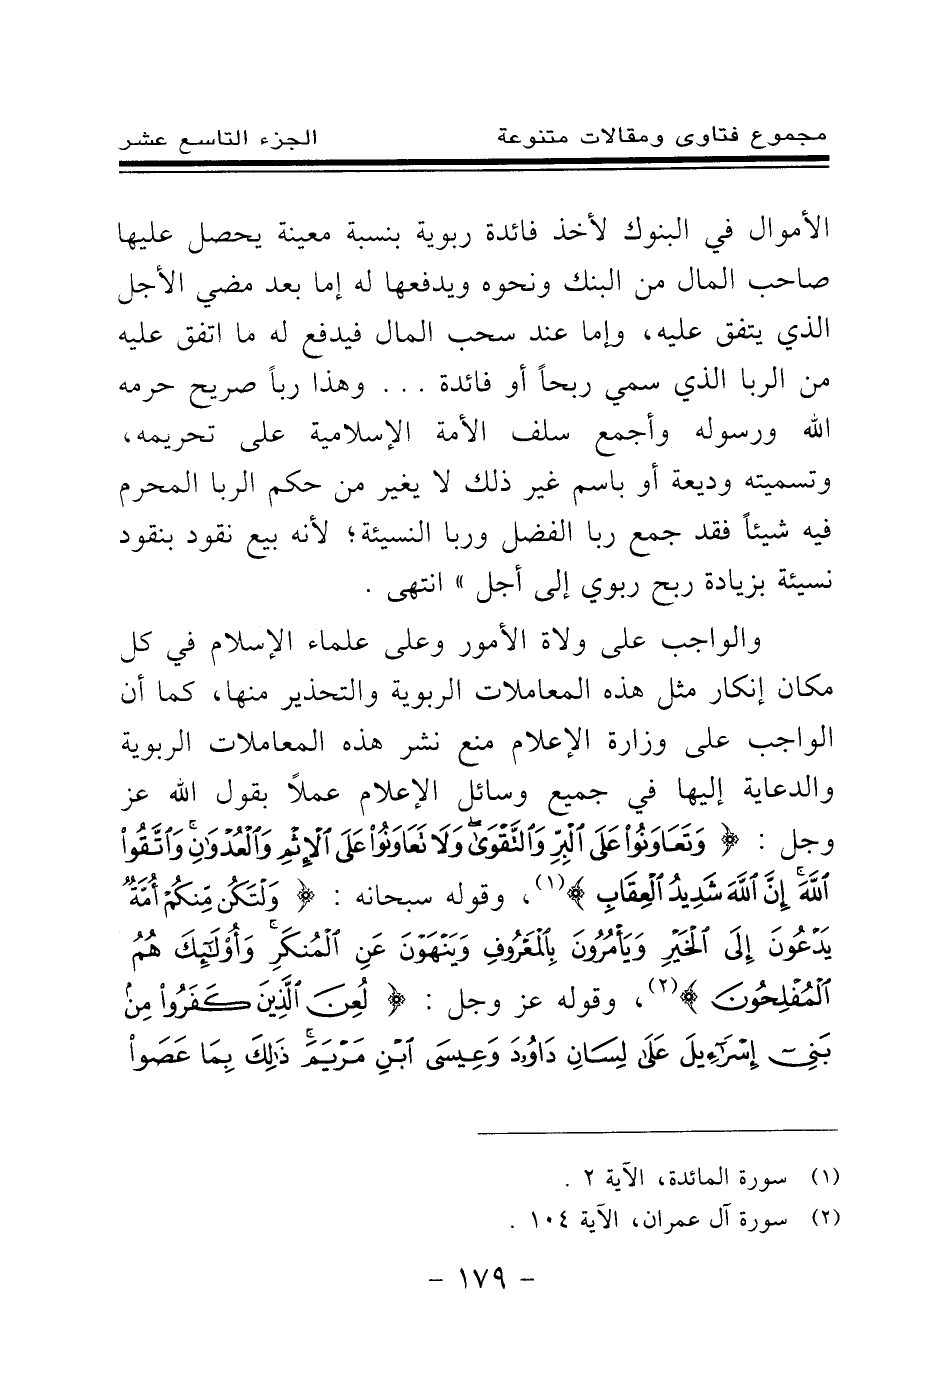 مجموع فتاوى ومقالات متنوعة الجزء التاسع عشر
الأموال في البنوك لأخذ فائدة ربوية بنسبة معينة يحصل عليها
صاحب المال من البنك ونحوه ويدفعها له إما بعد مضي الأجل
الذي يتفق عليه، وإما عند سحب المال فيدفع له ما اتفق عليه
من الربا الذي سمي ربحاً أو فائدة ... وهذا رباً صريح حرمه
الله ورسوله وأجمع سلف الأمة الإسلامية على تحريمه،
وتسميته وديعة أو باسم غير ذلك لا يغير من حكم الربا المحرم
فيه شيئاً فقد جمع ربا الفضل وربا النسيئة؛ لأنه بيع نقود بنقود
نسيئة بزيادة ربح ربوي إلى أجل » انتهى .
والواجب على ولاة الأمور وعلى علماء الإسلام في كل
مكان إنكار مثل هذه المعاملات الربوية والتحذير منها، كما أن
الواجب على وزارة الإعلام منع نشر هذه المعاملات الربوية
والدعاية إليها في جميع وسائل الإعلام عملاً بقول الله عز
وجل : ﴿ وَتَعَاوَنُوا۟ عَلَى ٱلْبِرِّ وَٱلتَّقْوَىٰ ۖ وَلَا تَعَاوَنُوا۟ عَلَى ٱلْإِثْمِ وَٱلْعُدْوَٰنِ ۚ وَٱتَّقُوا۟
ٱللَّهَ ۚ إِنَّ ٱللَّهَ شَدِيدُ ٱلْعِقَابِ ﴾(١)، وقوله سبحانه : ﴿ وَلْتَكُن مِّنكُمْ أُمَّةٌ
يَدْعُونَ إِلَى ٱلْخَيْرِ وَيَأْمُرُونَ بِٱلْمَعْرُوفِ وَيَنْهَوْنَ عَنِ ٱلْمُنكَرِ ۚ وَأُو۟لَٰٓئِكَ هُمُ
ٱلْمُفْلِحُونَ ﴾(٢)، وقوله عز وجل : ﴿ لُعِنَ ٱلَّذِينَ كَفَرُوا۟ مِنۢ
بَنِىٓ إِسْرَٰٓءِيلَ عَلَىٰ لِسَانِ دَاوُۥدَ وَعِيسَى ٱبْنِ مَرْيَمَ ۚ ذَٰلِكَ بِمَا عَصَوا۟
(١) سورة المائدة، الآية ٢ .
(٢) سورة آل عمران، الآية ١٠٤ .
- ١٧٩ -